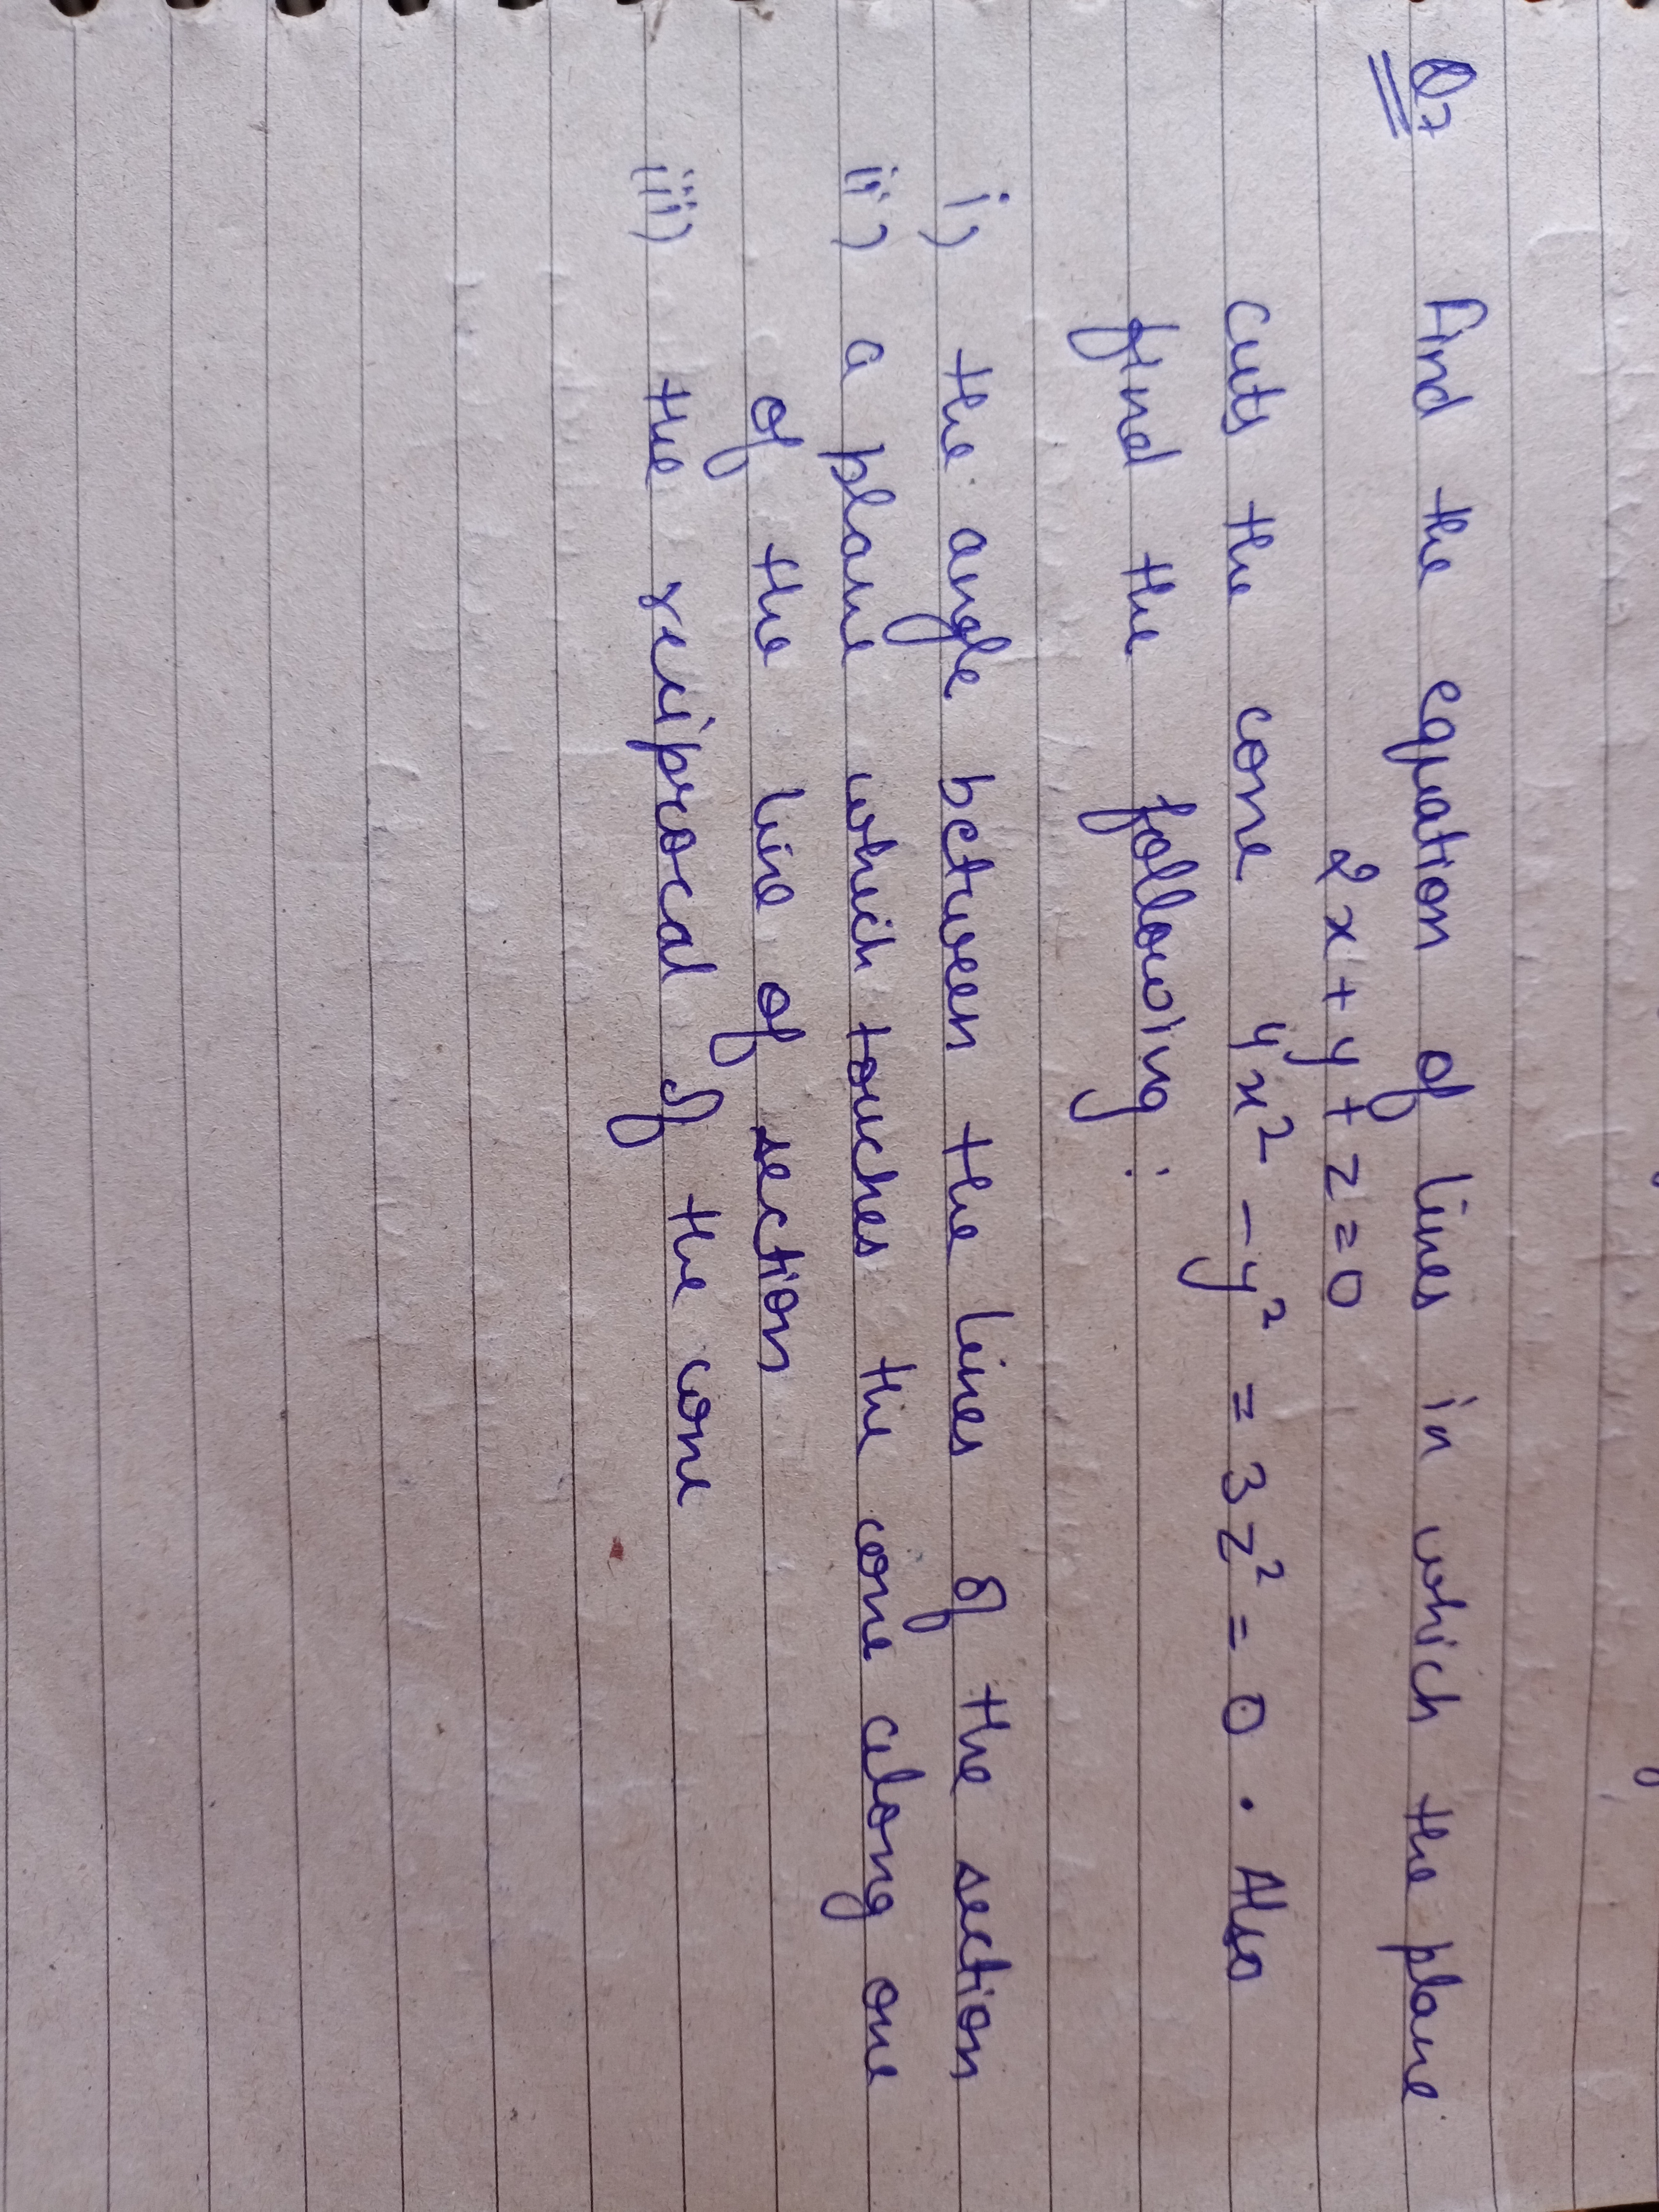 Q7 Find the equation of lines in which the plane
2x + y + z = 0
cuts the cone 4x² - y² = 3z² = 0 . Also
find the following :
i) the angle between the lines of the section
ii) a plane which touches the cone along one
of the line of section
iii) the reciprocal of the cone